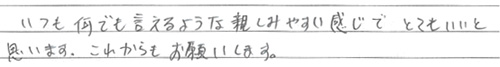 いつも何でも言えるような親しみやすい感じでとてもいいと
思います。これからもお願いします。